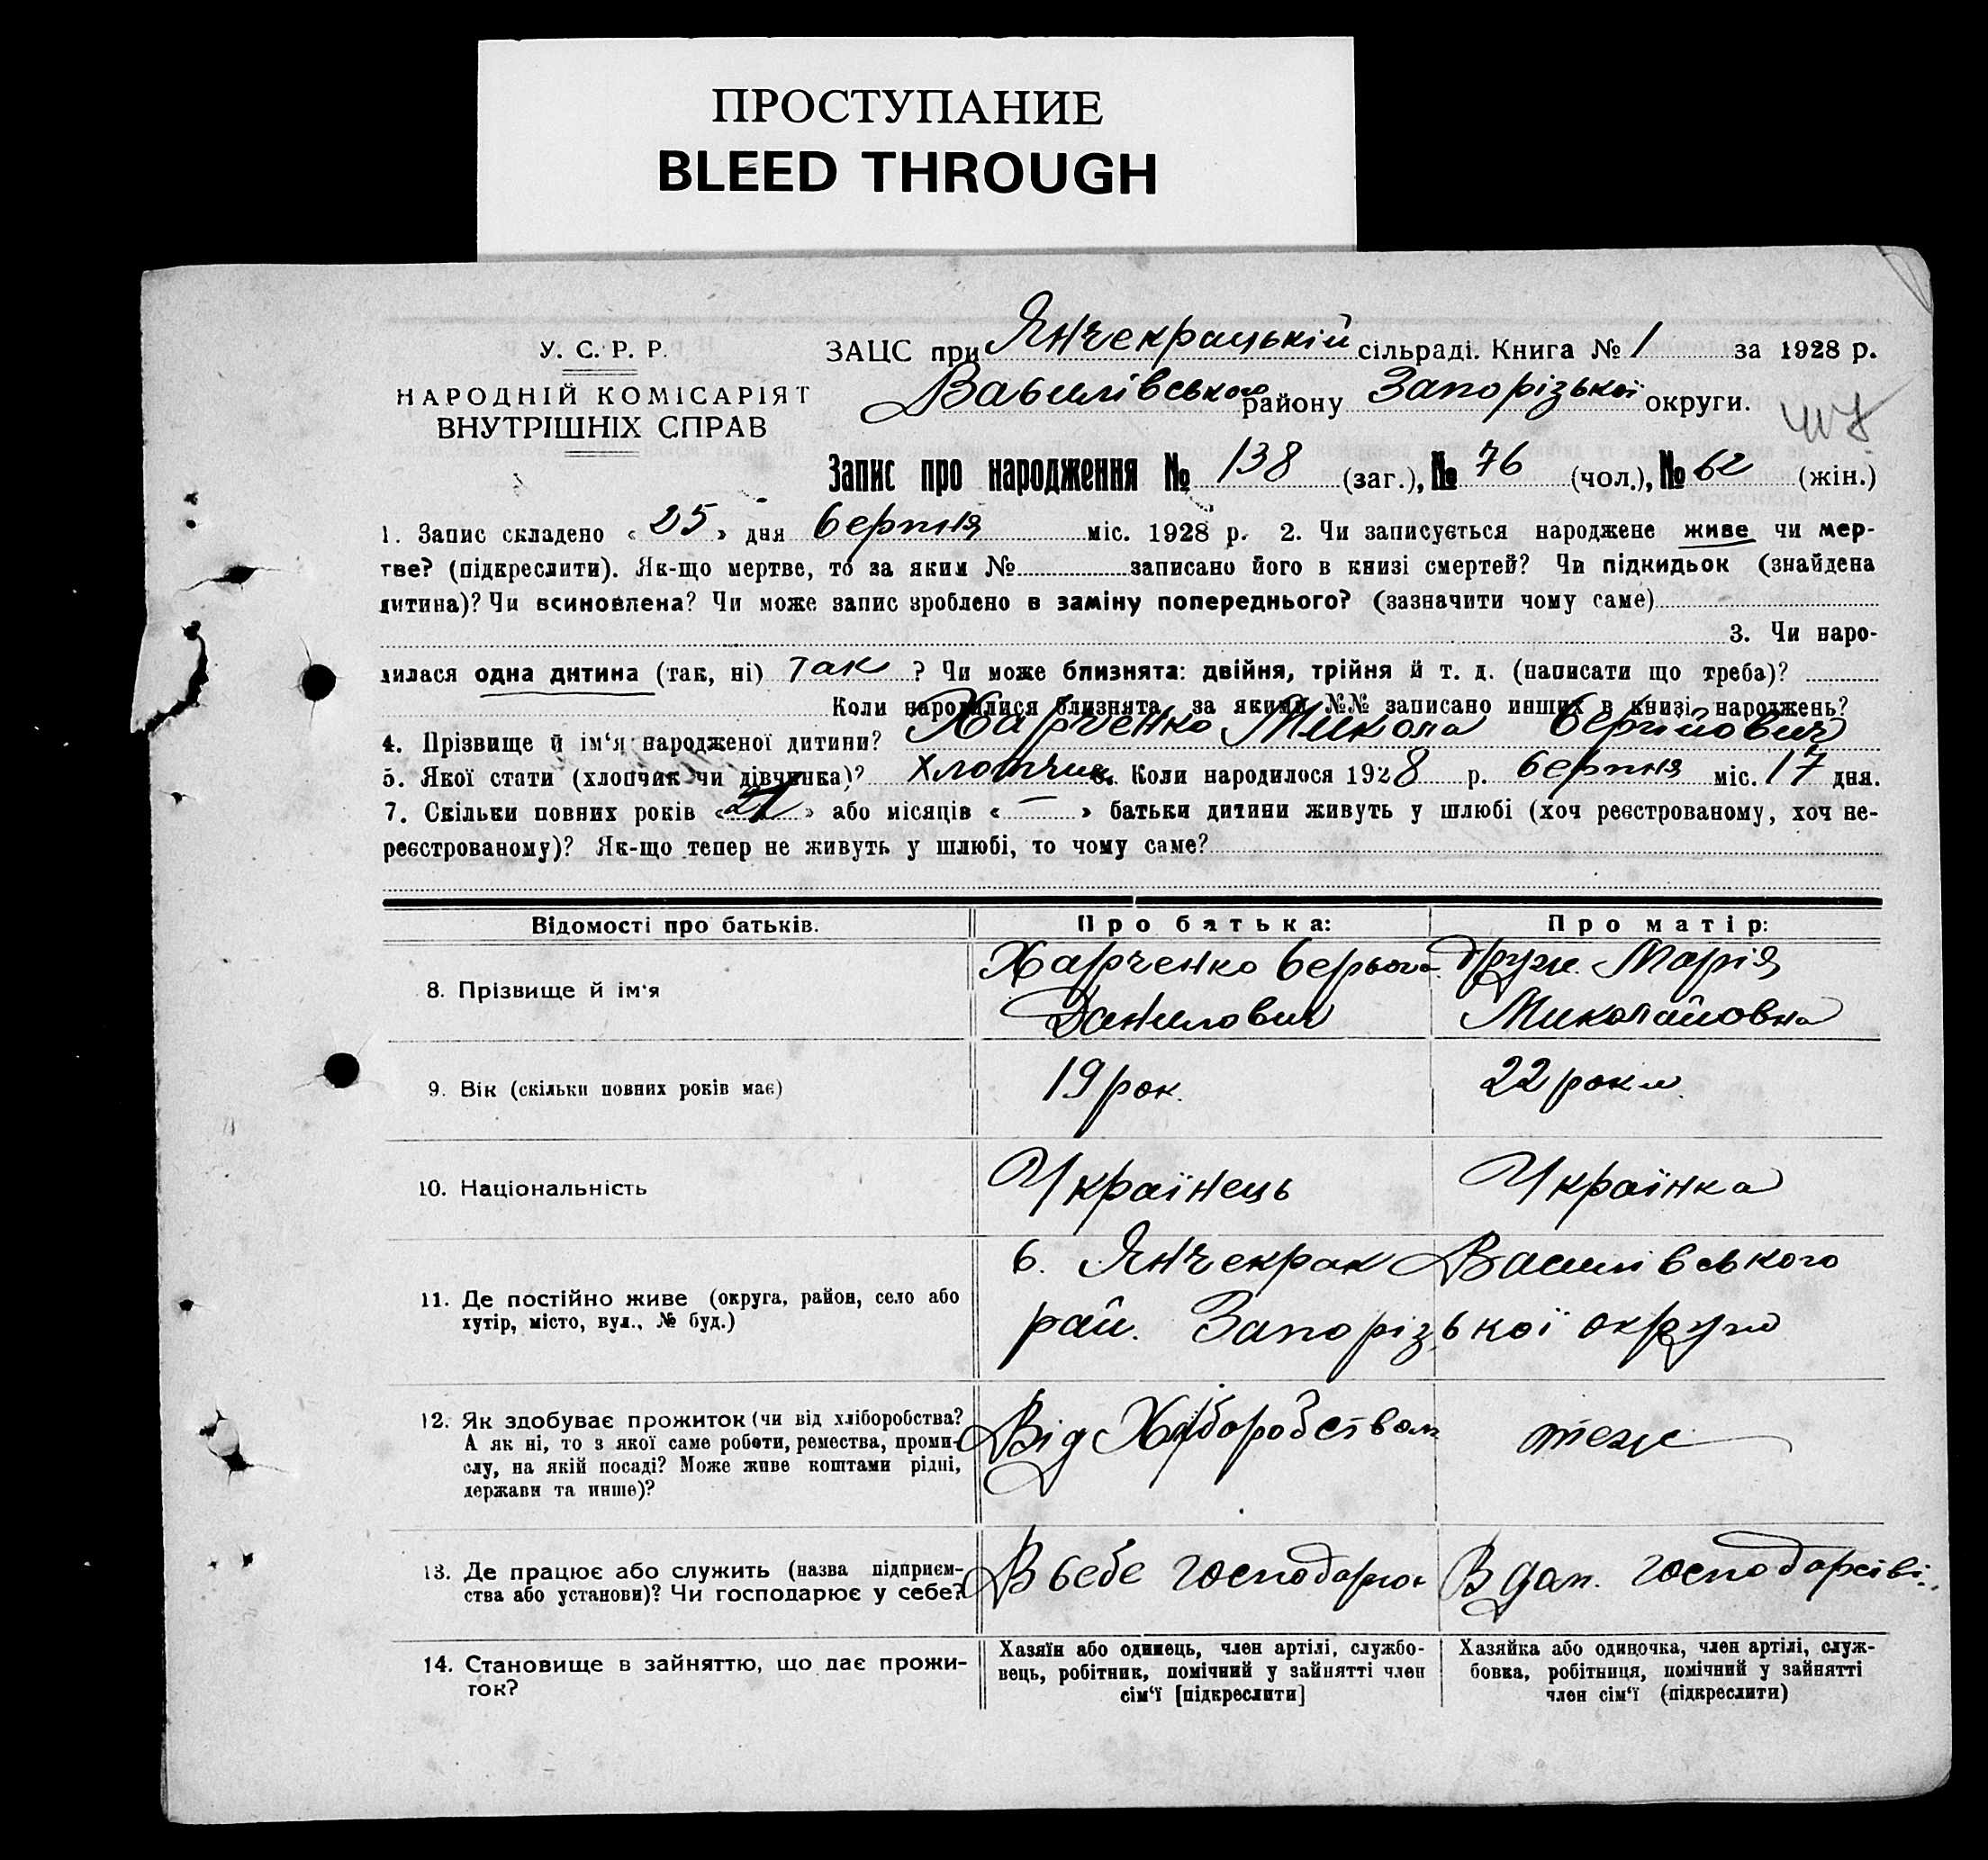 ПРОСТУПАНИЕ
BLEED THROUGH
У. С. Р. Р.
НАРОДНІЙ КОМІСАРІЯТ
ВНУТРІШНІХ СПРАВ
ЗАЦС при Янчекрацькій сільраді. Книга № 1 за 1928 р.
Василівського району Запорізької округи.
Запис про народження № 138 (заг.), № 76 (чол.), № 62 (жін.)
1. Запис складено « 25 » дня серпня міс. 1928 р. 2. Чи записується народжене живе чи мер-
тве? (підкреслити). Як-що мертве, то за яким № записано його в книзі смертей? Чи підкидьок (знайдена
дитина)? Чи всиновлена? Чи може запис зроблено в заміну попереднього? (зазначити чому саме)
3. Чи наро-
дилася одна дитина (так, ні) так ? Чи може близнята: двійня, трійня й т. д. (написати що треба)?
Коли народилися близнята, за якими №№ записано инших в книзі народжень?
4. Прізвище й ім‘я народженої дитини? Харченко Микола Сергійович
5. Якої стати (хлопчик чи дівчинка)? хлопчик 6. Коли народилося 1928 р. серпня міс. 17 дня.
7. Скільки повних років « » або місяців « — » батьки дитини живуть у шлюбі (хоч реєстрованому, хоч не-
реєстрованому)? Як-що тепер не живуть у шлюбі, то чому саме?
Відомості про батьків. Про батька: Про матір:
8. Прізвище й ім‘я
Харченко Данилович
друж. Марія Миколайовна
9. Вік (скільки повних років має) 19 рок. 22 роки
10. Національність Українець Українка
11. Де постійно живе (округа, район, село або
хутір, місто, вул., № буд.)
с. Янчекрак Василівського
рай. Запорізької округи
12. Як здобуває прожиток (чи від хліборобства?
А як ні, то з якої саме роботи, ремества, проми-
слу, на якій посаді? Може живе коштами рідні,
держави та инше)?
Від теж
13. Де працює або служить (назва підприєм-
ства або установи)? Чи господарює у себе?
В себе господарює В дом. господарстві
14. Становище в зайняттю, що дає прожи-
ток?
Хазяїн або одинець, член артілі, службо-
вець, робітник, помічний у зайнятті член
сім‘ї [підкреслити]
Хазяйка або одиночка, член артілі, служ-
бовка, робітниця, помічний у зайнятті
член сім‘ї (підкреслити)